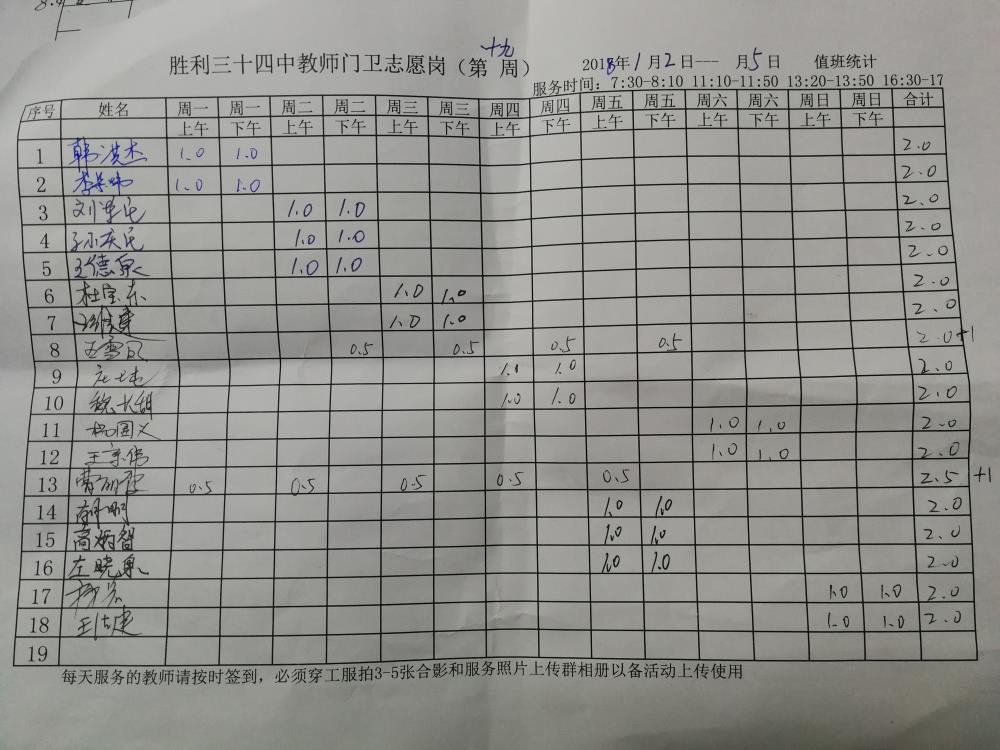 胜利三十四中教师门卫志愿岗（第十九周） 2018年1月2日--- 月5日 值班统计
服务时间：7:30-8:10 11:10-11:50 13:20-13:50 16:30-17
序号 姓名 周一 周一 周二 周二 周三 周三 周四 周四 周五 周五 周六 周六 周日 周日 合计
上午 下午 上午 下午 上午 下午 上午 下午 上午 下午 上午 下午 上午 下午
1 韩洪杰 1.0 1.0 2.0
2 1.0 1.0 2.0
3 1.0 1.0 2.0
4 孙庆民 1.0 1.0 2.0
5 王德泉 1.0 1.0 2.0
6 杜宝东 1.0 1.0 2.0
7 1.0 1.0 2.0
8 0.5 0.5 0.5 0.5 2.0+1
9 1.0 1.0 2.0
10 1.0 1.0 2.0
11 杨国义 1.0 1.0 2.0
12 王京伟 1.0 1.0 2.0
13 0.5 0.5 0.5 0.5 0.5 2.5 +1
14 1.0 1.0 2.0
15 高炳智 1.0 1.0 2.0
16 左晓泉 1.0 1.0 2.0
17 1.0 1.0 2.0
18 1.0 1.0 2.0
19
每天服务的教师请按时签到，必须穿工服拍3-5张合影和服务照片上传群相册以备活动上传使用